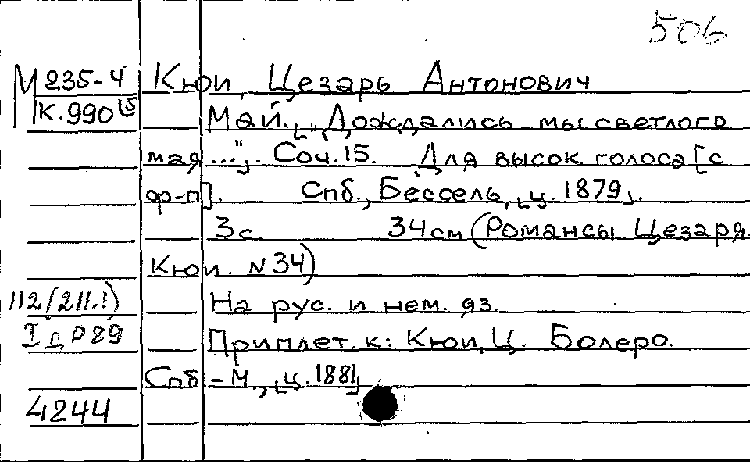 506
М 235-4 Кюи, Цезарь Антонович
К.990 Май. [„Дождались мы светлого
мая..."]. Соч. 15. Для высок. голоса [с
ф-п]. Спб., Бессель, [ц. 1879].
3 с. 34 см (Романсы Цезаря
Кюи. N 34)
На рус. и нем. яз.
Приплет. к: Кюи, Ц. Болеро.
Спб - М., [ц. 1881]
4244